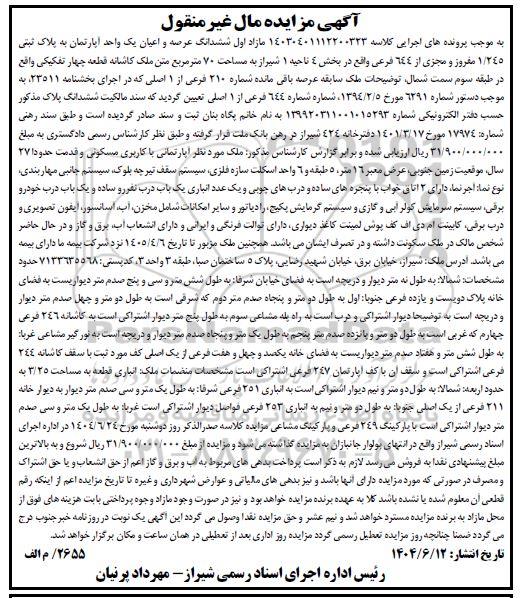 آگهی مزایده مال غیرمنقول
به موجب پرونده های اجرایی کلاسه ۱۴۰۳۰۴۰۱۱۱۲۲۰۰۳۲۳ مازاد اول ششدانگ عرصه و اعیان یک واحد آپارتمان به پلاک ثبتی
۱/۲۴۵ مفروز و مجزی از ۶۴۴ فرعی واقع در بخش ۴ ناحیه ۱ شیراز به مساحت ۷۰ مترمربع متن ملک کاشانه قطعه چهار تفکیکی واقع
در طبقه سوم سمت شمال، توضیحات ملک سابقه عرصه باقی مانده شماره ۲۱۰ فرعی از ۱ اصلی که در اجرای بخشنامه ۲۳۵۱۱، به
موجب دستور شماره ۶۲۹۱ مورخ ۱۳۹۴/۲/۵، شماره شماره ۶۴۴ فرعی از ۱ اصلی تعیین گردید که سند مالکیت ششدانگ پلاک مذکور
حسب دفتر الکترونیکی شماره ۱۳۹۹۲۰۳۱۱۰۰۱۰۱۵۲۹۳ به نام خانم پگاه بنان ثبت و سند صادر گردیده است و طبق سند رهنی
شماره: ۱۷۹۷۴ مورخ ۱۴۰۱/۳/۱۷ دفترخانه ۴۲۴ شیراز در رهن بانک ملت قرار گرفته و طبق نظر کارشناس رسمی دادگستری به مبلغ
۳۱/۹۰۰/۰۰۰/۰۰۰ ریال ارزیابی شده و برابر گزارش کارشناس مذکور: ملک مورد نظر آپارتمانی با کاربری مسکونی و قدمت حدودا ۲۷
سال، موقعیت زمین جنوبی، عرض معبر ۱۶ متر، ۵ طبقه و ۶ واحد اسکلت سازه فلزی، سیستم سقف تیرچه بلوک، سیستم جانبی مهاربندی،
نوع نما: آجرنما، دارای ۲ اتاق خواب با پنجره های ساده و درب های چوبی و یک عدد انباری یک باب درب نفررو ساده و یک باب درب خودرو
برقی، سیستم سرمایش کولر آبی و گازی و سیستم گرمایش پکیج، رادیاتور و سایر امکانات شامل مخزن، آب، آسانسور، آیفون تصویری و
درب برقی، کابینت ام دی اف کف پوش لمینت کاغذ دیواری، دارای توالت فرنگی و ایرانی و دارای انشعاب آب، برق و گاز و در حال حاضر
شخص مالک در ملک سکونت داشته و در تصرف ایشان می باشد. همچنین ملک مزبور تا تاریخ ۱۴۰۵/۴/۶ نزد شرکت بیمه ما دارای بیمه
می باشد. آدرس ملک: شیراز، خیابان برق، خیابان شهید رضایی، پلاک ۵ ساختمان صبا، طبقه ۳ واحد ۳، کدپستی: ۷۱۳۳۶۳۵۵۶۸ حدود
مشخصات: شمالا: به طول نه متر دیوار و دریچه است به فضای خیابان شرقا: به طول شش متر و سی و پنج صدم متر دیواریست به فضای
خانه پلاک دویست و یازده فرعی جنوبا: اول به طول دو متر و پنجاه صدم متر دوم که شرقی است به طول دو متر و چهل صدم متر
و دریچه است به توضیحا دیوار اشتراکی و درب است به راه پله مشاعی سوم به طول پنج متر دیوار اشتراکی است به کاشانه ۲۴۶ فرعی
چهارم که غربی است به طول دو متر و پانزده صدم متر پنجم به طول یک متر و پنجاه صدم متر دیوار و دریچه است به نورگیر مشاعی غربا:
به طول شش متر و هفتاد صدم متر دیواریست به فضای خانه یکصد و چهل و هفت فرعی از یک اصلی کف مورد ثبت با سقف کاشانه ۲۴۴
فرعی اشتراکی است و سقف آن با کف آپارتمان ۲۴۷ فرعی اشتراکی است مشخصات منضمات ملک: انباری قطعه به مساحت ۳/۲۵ به
حدود اربعه: شمالا: به طول دو متر و نیم دیوار اشتراکی است به انباری ۲۵۱ فرعی شرقا: به طول یک متر و سی صدم متر دیوار به دیوار خانه
۲۱۱ فرعی از یک اصلی جنوبا: به طول دو متر و نیم به انباری ۲۵۳ فرعی فواصل دیوار اشتراکی است غربا: به طول یک متر و سی صدم
متر دیوار اشتراکی است با پارکینگ ۲۴۹ فرعی و پارکینگ مشاعی مزایده کلاسه صدرالذکر روز دوشنبه مورخ ۱۴۰۴/۶/۲۴ در اداره اجرای
اسناد رسمی شیراز واقع در انتهای بولوار جانبازان به مزایده گذاشته می شود و مزایده از مبلغ ۳۱/۹۰۰/۰۰۰/۰۰۰ ریال شروع و به بالاترین
مبلغ پیشنهادی نقدا به فروش می رسد لازم به ذکر است پرداخت بدهی های مربوط به آب و برق و گاز اعم از حق انشعاب و یا حق اشتراک
و مصرف در صورتی که مورد مزایده دارای آنها باشد و نیز بدهی های مالیاتی و عوارض شهرداری و غیره تا تاریخ مزایده اعم از اینکه رقم
قطعی آن معلوم شده یا نشده باشد کلا به عهده برنده مزایده خواهد بود و نیز در صورت وجود مازاد وجوه پرداختی بابت هزینه های فوق از
محل مازاد به برنده مزایده مسترد خواهد شد و نیم عشر و حق مزایده نقدا وصول می گردد این آگهی یک نوبت در روزنامه خبرجنوب درج
می گردد ضمنا چنانچه روز مزایده تعطیل رسمی گردد مزایده روز اداری بعد از تعطیلی در همان ساعت و مکان برگزار خواهد شد.
تاریخ انتشار: ۱۴۰۴/۶/۱۲
۲۶۵۵/ م الف
رئیس اداره اجرای اسناد رسمی شیراز – مهرداد پرنیان